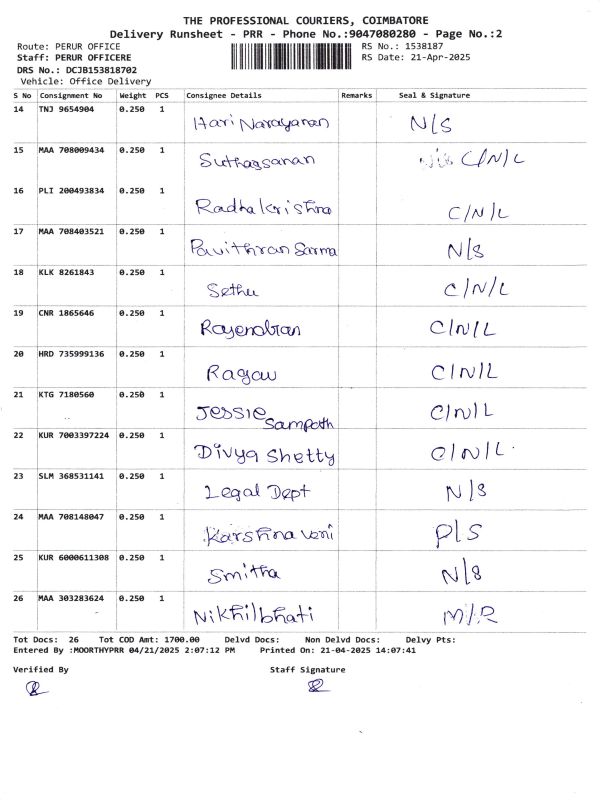 THE PROFESSIONAL COURIERS, COIMBATORE
Delivery Runsheet - PRR - Phone No.:9047080280 - Page No.:2
Route: PERUR OFFICE RS No.: 1538187
Staff: PERUR OFFICERE RS Date: 21-Apr-2025
DRS No.: DCJB153818702
Vehicle: Office Delivery
S No Consignment No Weight PCS Consignee Details Remarks Seal & Signature
14 TNJ 9654904 0.250 1 Hari Narayanan N/S
15 MAA 708009434 0.250 1 Suthagsanan C/N/L
16 PLI 200493834 0.250 1 Radha Krishna C/N/L
17 MAA 708403521 0.250 1 Pavithran Sarma N/S
18 KLK 8261843 0.250 1 Sethu C/N/L
19 CNR 1865646 0.250 1 Rajendran C/N/L
20 HRD 735999136 0.250 1 Ragav C/N/L
21 KTG 7180560 0.250 1 Jessie Sampath C/N/L
22 KUR 7003397224 0.250 1 Divya Shetty C/N/L
23 SLM 368531141 0.250 1 Legal Dept N/S
24 MAA 708148047 0.250 1 Karshna veni P/S
25 KUR 6000611308 0.250 1 Smitha N/S
26 MAA 303283624 0.250 1 Nikhilbhati M/R
Tot Docs: 26 Tot COD Amt: 1700.00 Delvd Docs: Non Delvd Docs: Delvy Pts:
Entered By :MOORTHYPRR 04/21/2025 2:07:12 PM Printed On: 21-04-2025 14:07:41
Verified By Staff Signature